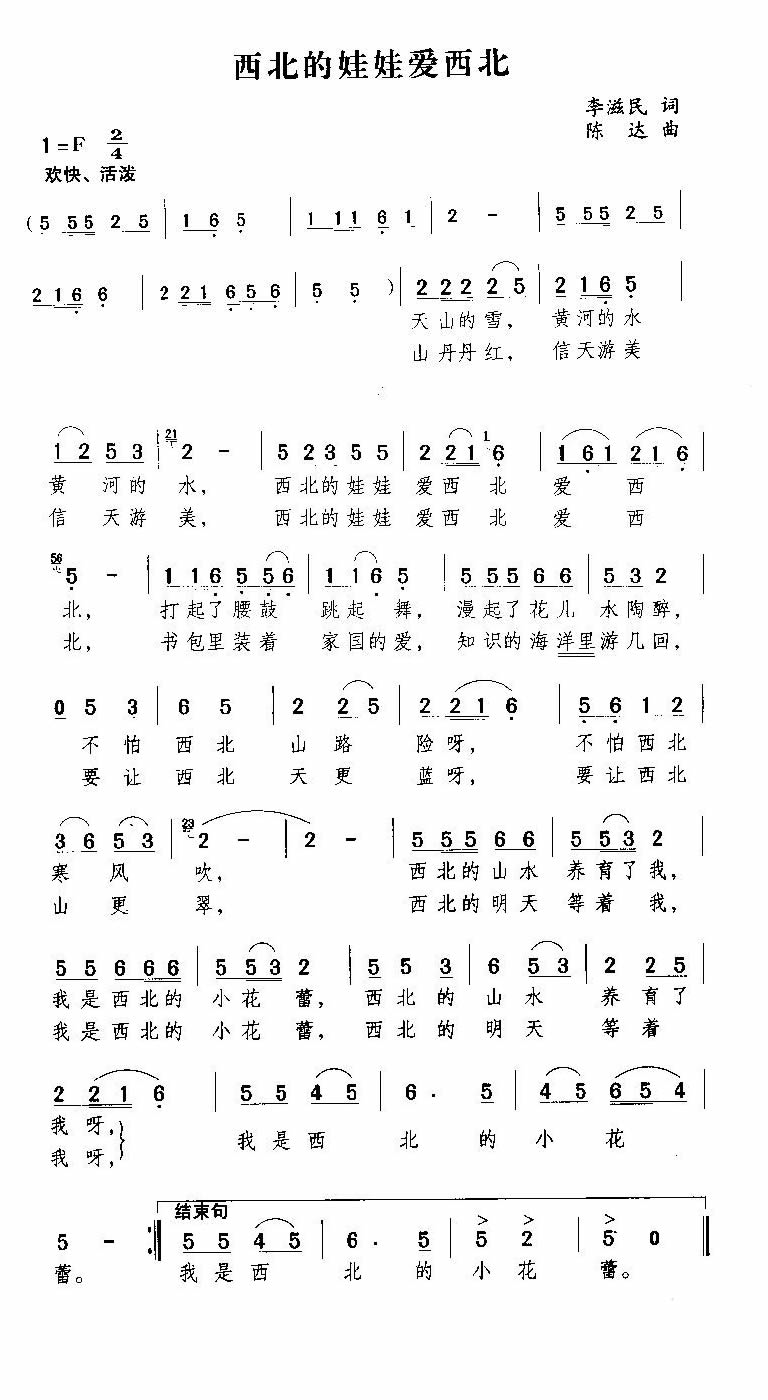 西北的娃娃爱西北
李滋民 词
陈 达 曲
1=F 2/4
欢快、活泼
(5 55 2 5 | 1 6 5 | 1 11 6 1 | 2 - | 5 55 2 5 |
2 1 6 6 | 2 2 1 6 5 6 | 5 5 ) | 2 2 2 2 2 5 | 2 1 6 5 |
天山的雪, 黄河的水
山丹丹红, 信天游美
1 2 5 3 | 21 2 - | 5 2 3 5 5 | 2 2 1 1 6 | 1 6 1 2 1 6 |
黄 河的 水, 西北的娃娃 爱西 北 爱 西
信 天游 美, 西北的娃娃 爱西 北 爱 西
56 5 - | 1 1 6 5 5 6 | 1 1 6 5 | 5 5 5 6 6 | 5 3 2 |
北, 打起了腰鼓 跳起 舞, 漫起了花儿 水陶醉,
北, 书包里装着 家国的爱, 知识的海洋里游几回,
0 5 3 | 6 5 | 2 2 5 | 2 2 1 6 | 5 6 1 2 |
不怕 西北 山路 险呀, 不怕西北
要让 西北 天更 蓝呀, 要让西北
3 6 5 3 | 23 2 - | 2 - | 5 5 5 6 6 | 5 5 3 2 |
寒 风 吹, 西北的山水 养育了我,
山 更 翠, 西北的明天 等着 我,
5 5 6 6 6 | 5 5 3 2 | 5 5 3 | 6 5 3 | 2 2 5 |
我是西北的 小花 蕾, 西北的 山水 养育了
我是西北的 小花 蕾, 西北的 明天 等着
2 2 1 6 | 5 5 4 5 | 6 · 5 | 4 5 6 5 4 |
我 呀, 我是西 北 的 小 花
我 呀,
5 - :‖ 结束句 5 5 4 5 | 6 · 5 | 5 2 | 5 0 ‖
蕾。 我是西 北 的 小 花 蕾。